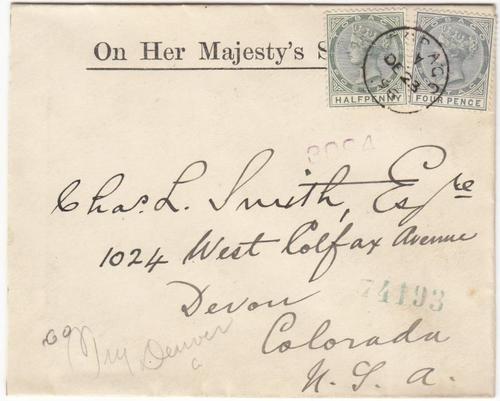 On Her Majesty's S
TOBAGO
HALFPENNY
FOUR PENCE
TOBAGO
A
DE 23
3094
Chas. L. Smith, Esqre
1024 West Colfax Avenue
Devon
74193
Colorado
U. S. A.
Try Denver